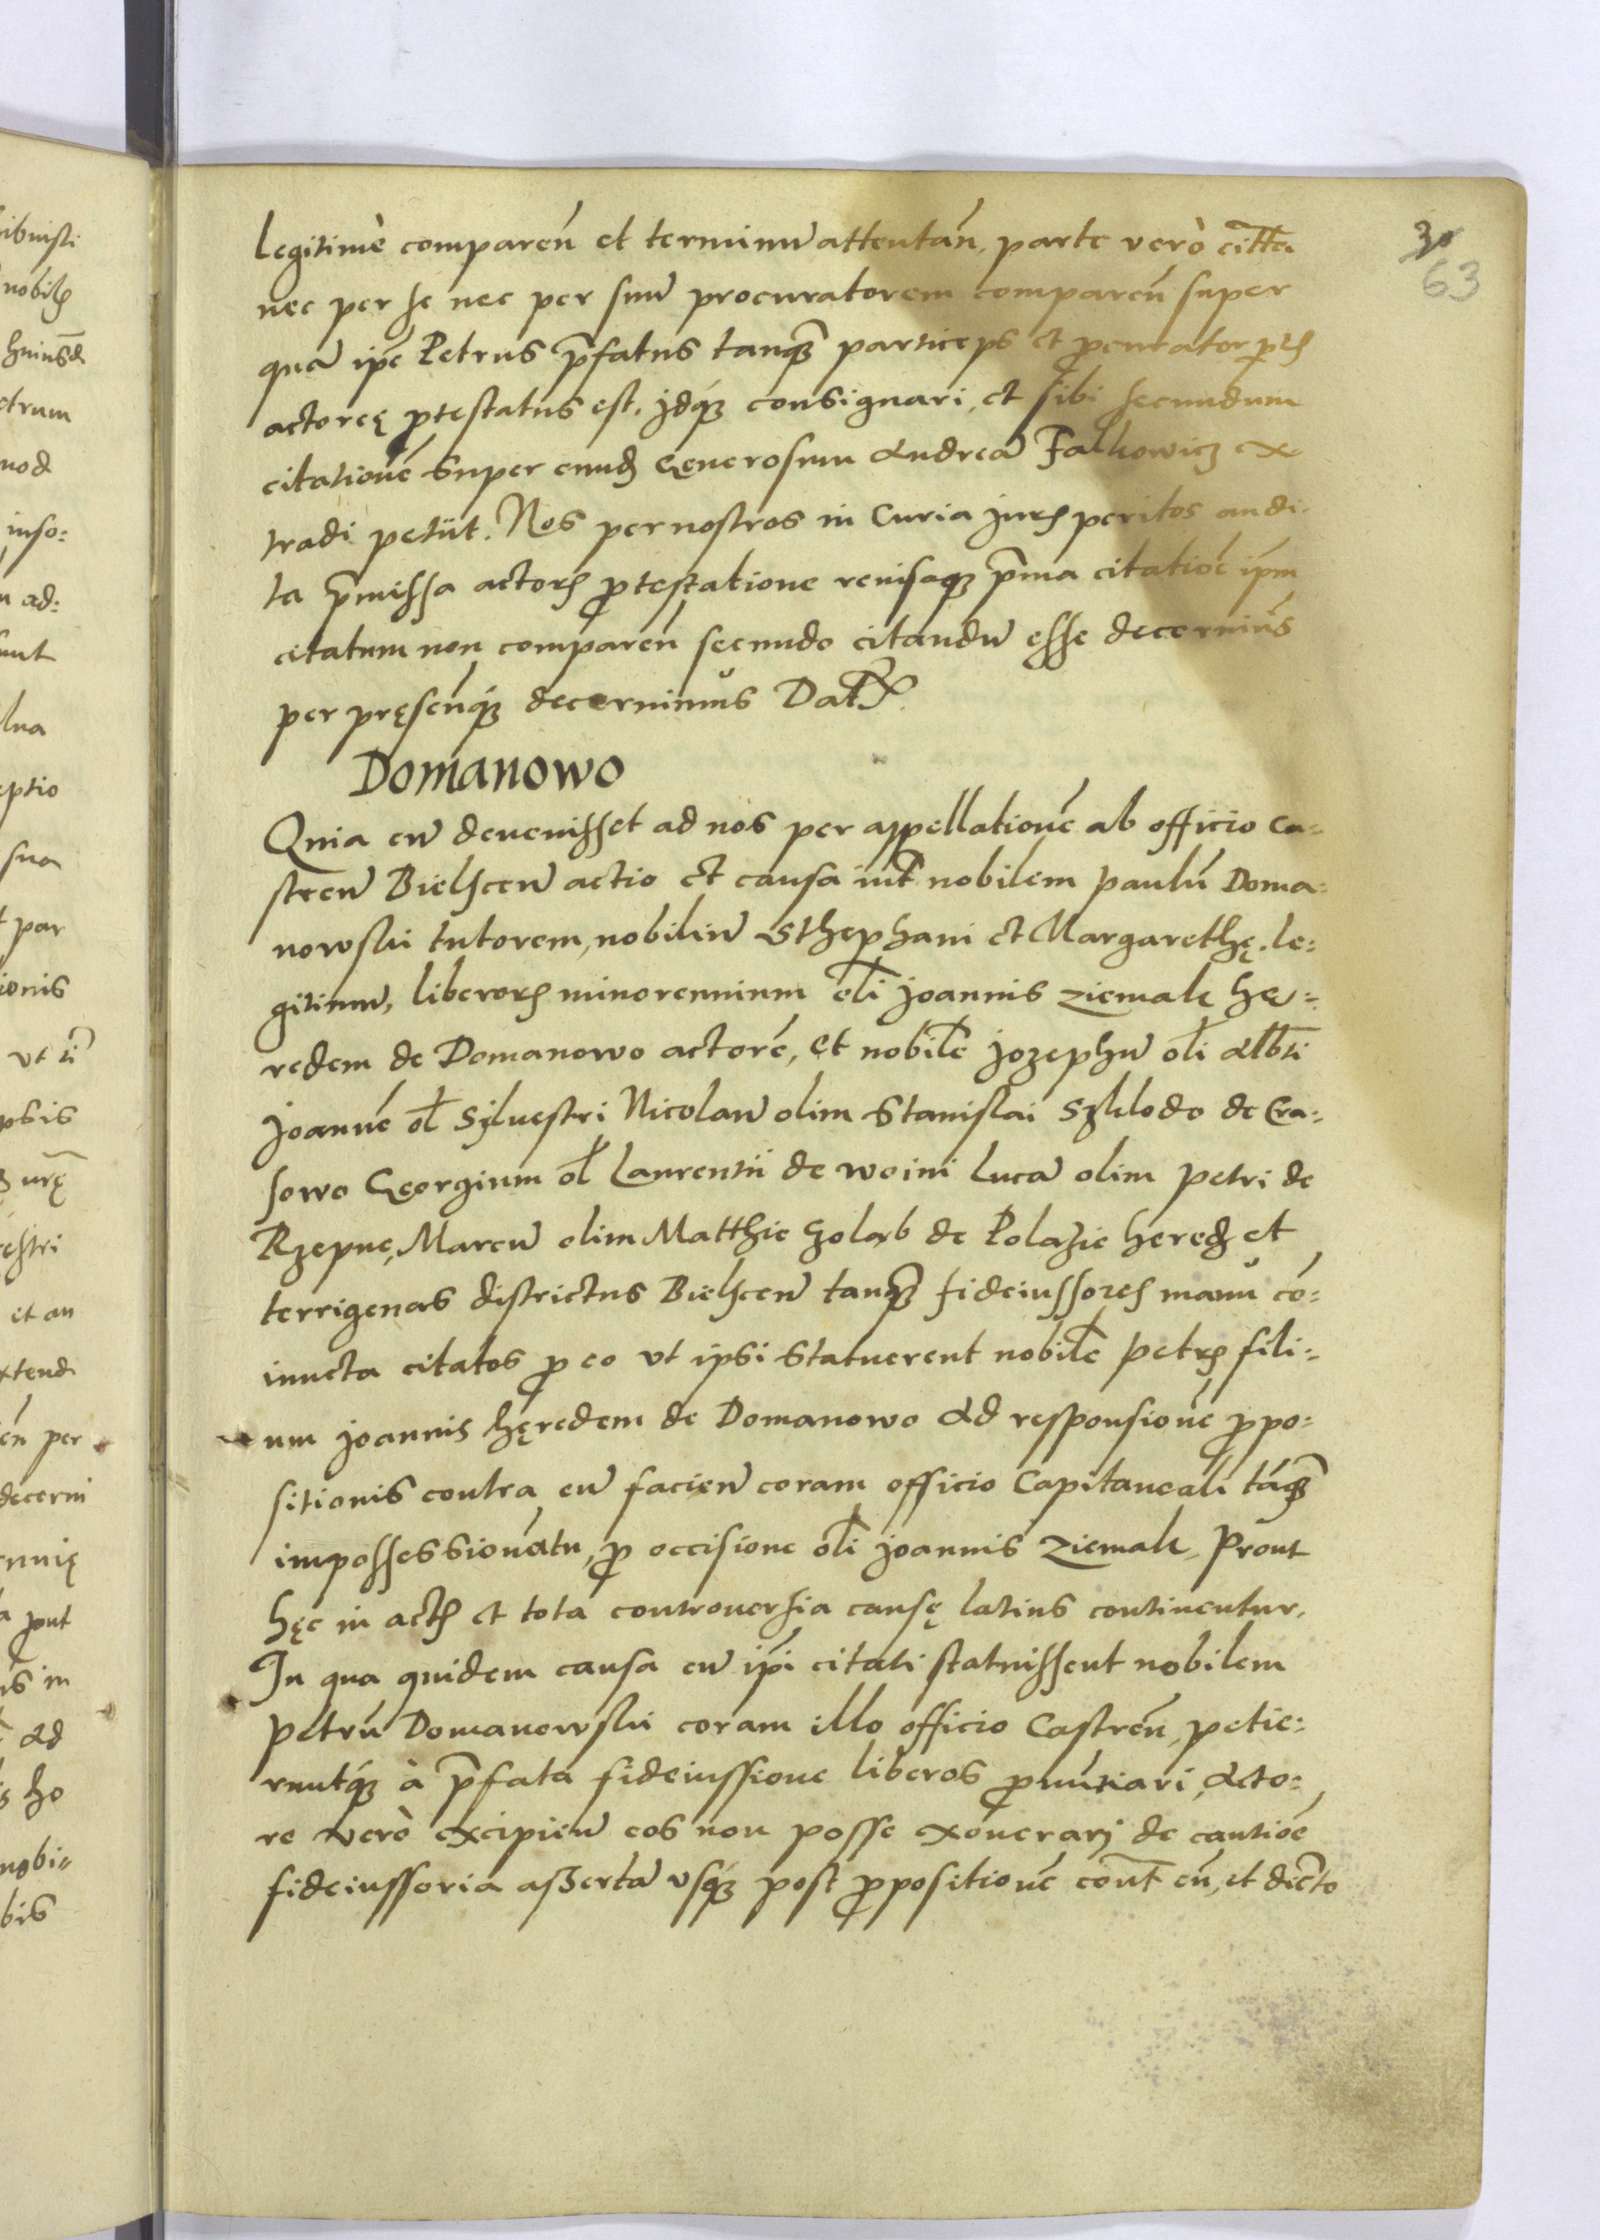 30
63
Legitimè comparen̄ et terminū attentan̄, parte verò citta
nec per se nec per suū procuratorem comparen̄ super
qua ipē Petrus p̄fatus tanq̄ particeps et procurator
actoreę ptestatus est, idq̨ consignari, et sibi secundum
citationē super eund Generosum Andreā Falkowicz ex
tradi petiit. Nos per nostros in Curia juris peritos audi-
ta p̄missa actoris ptestatione reuisaq̨ p̄ma citatioē ip̄m
citatum non comparen̄ secundo citandū esse decernim̄s
per pręsen̄q̨ decernimus Dat
Domanowo
Quia cū deuenisset ad nos per appellationē ab officio Ca-
stren̄ Bielscen̄ actio et causa int̄ nobilem Paulū Doma-
nowski tutorem, nobiliū Sthephani et Margarethę le-
gitimū, liberors minorennium oli Joannis Ziemak hę-
redem de Domanowo actorē, et nobile Jozephū oli Albti
Joannē ol Syluestri Nicolaū olim Stanislai Szklodo de Cra-
sowo Georgium ol Laurentii de Woini Lucā olim Petri de
Rzepne, Marcū olim Matthie Goląb de Polazie hered et
terrigenas districtus Bielscen̄ tanq̄ fideiussores manu co-
iuncta citatos p eo vt ipsi statuerent nobile Petrs fili-
um Joannis hęredem de Domanowo ad responsionē ppo-
sitionis contra eū facien̄ coram officio Capitaneali táq̄
impossessionatu, p occisione oli Joannis Ziemak, Prout
hęc in actis et tota controuersia causę latius continentur.
In qua quidem causa cū ip̄i citati statuissent nobilem
Petrū Domanowski coram illo officio Castren̄, petie-
runtq̨ à p̄fata fideiussione liberos pnūtiari, Acto-
re verò excipien̄ eos non posse exonerari de cautioē
fideiussoria asserta vsq̨ post ppositionē cont eū, et dicto